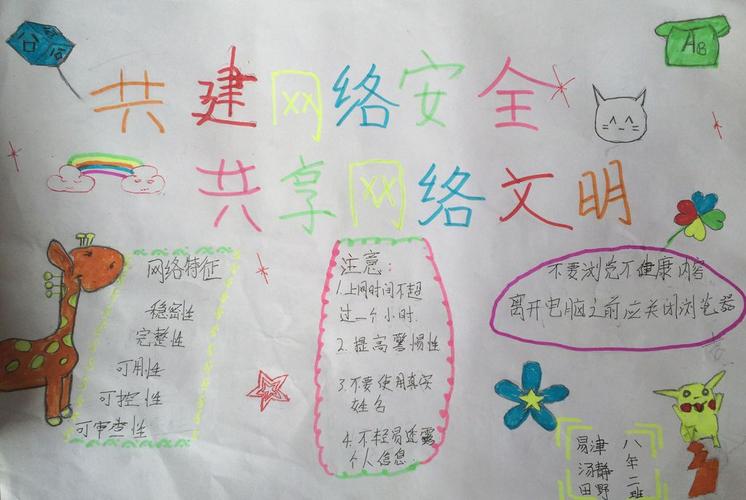 共建网络安全
共享网络文明
AB
网络特征
稳密性
完整性
可用性
可控性
可审查性
注意：
1.上网时间不超
过一个小时.
2.提高警惕性
3.不要使用真实
姓名
4.不轻易透露
个人信息.
不要浏览不健康内容
离开电脑之前应关闭浏览器
八年二班
易津
汤静
田野